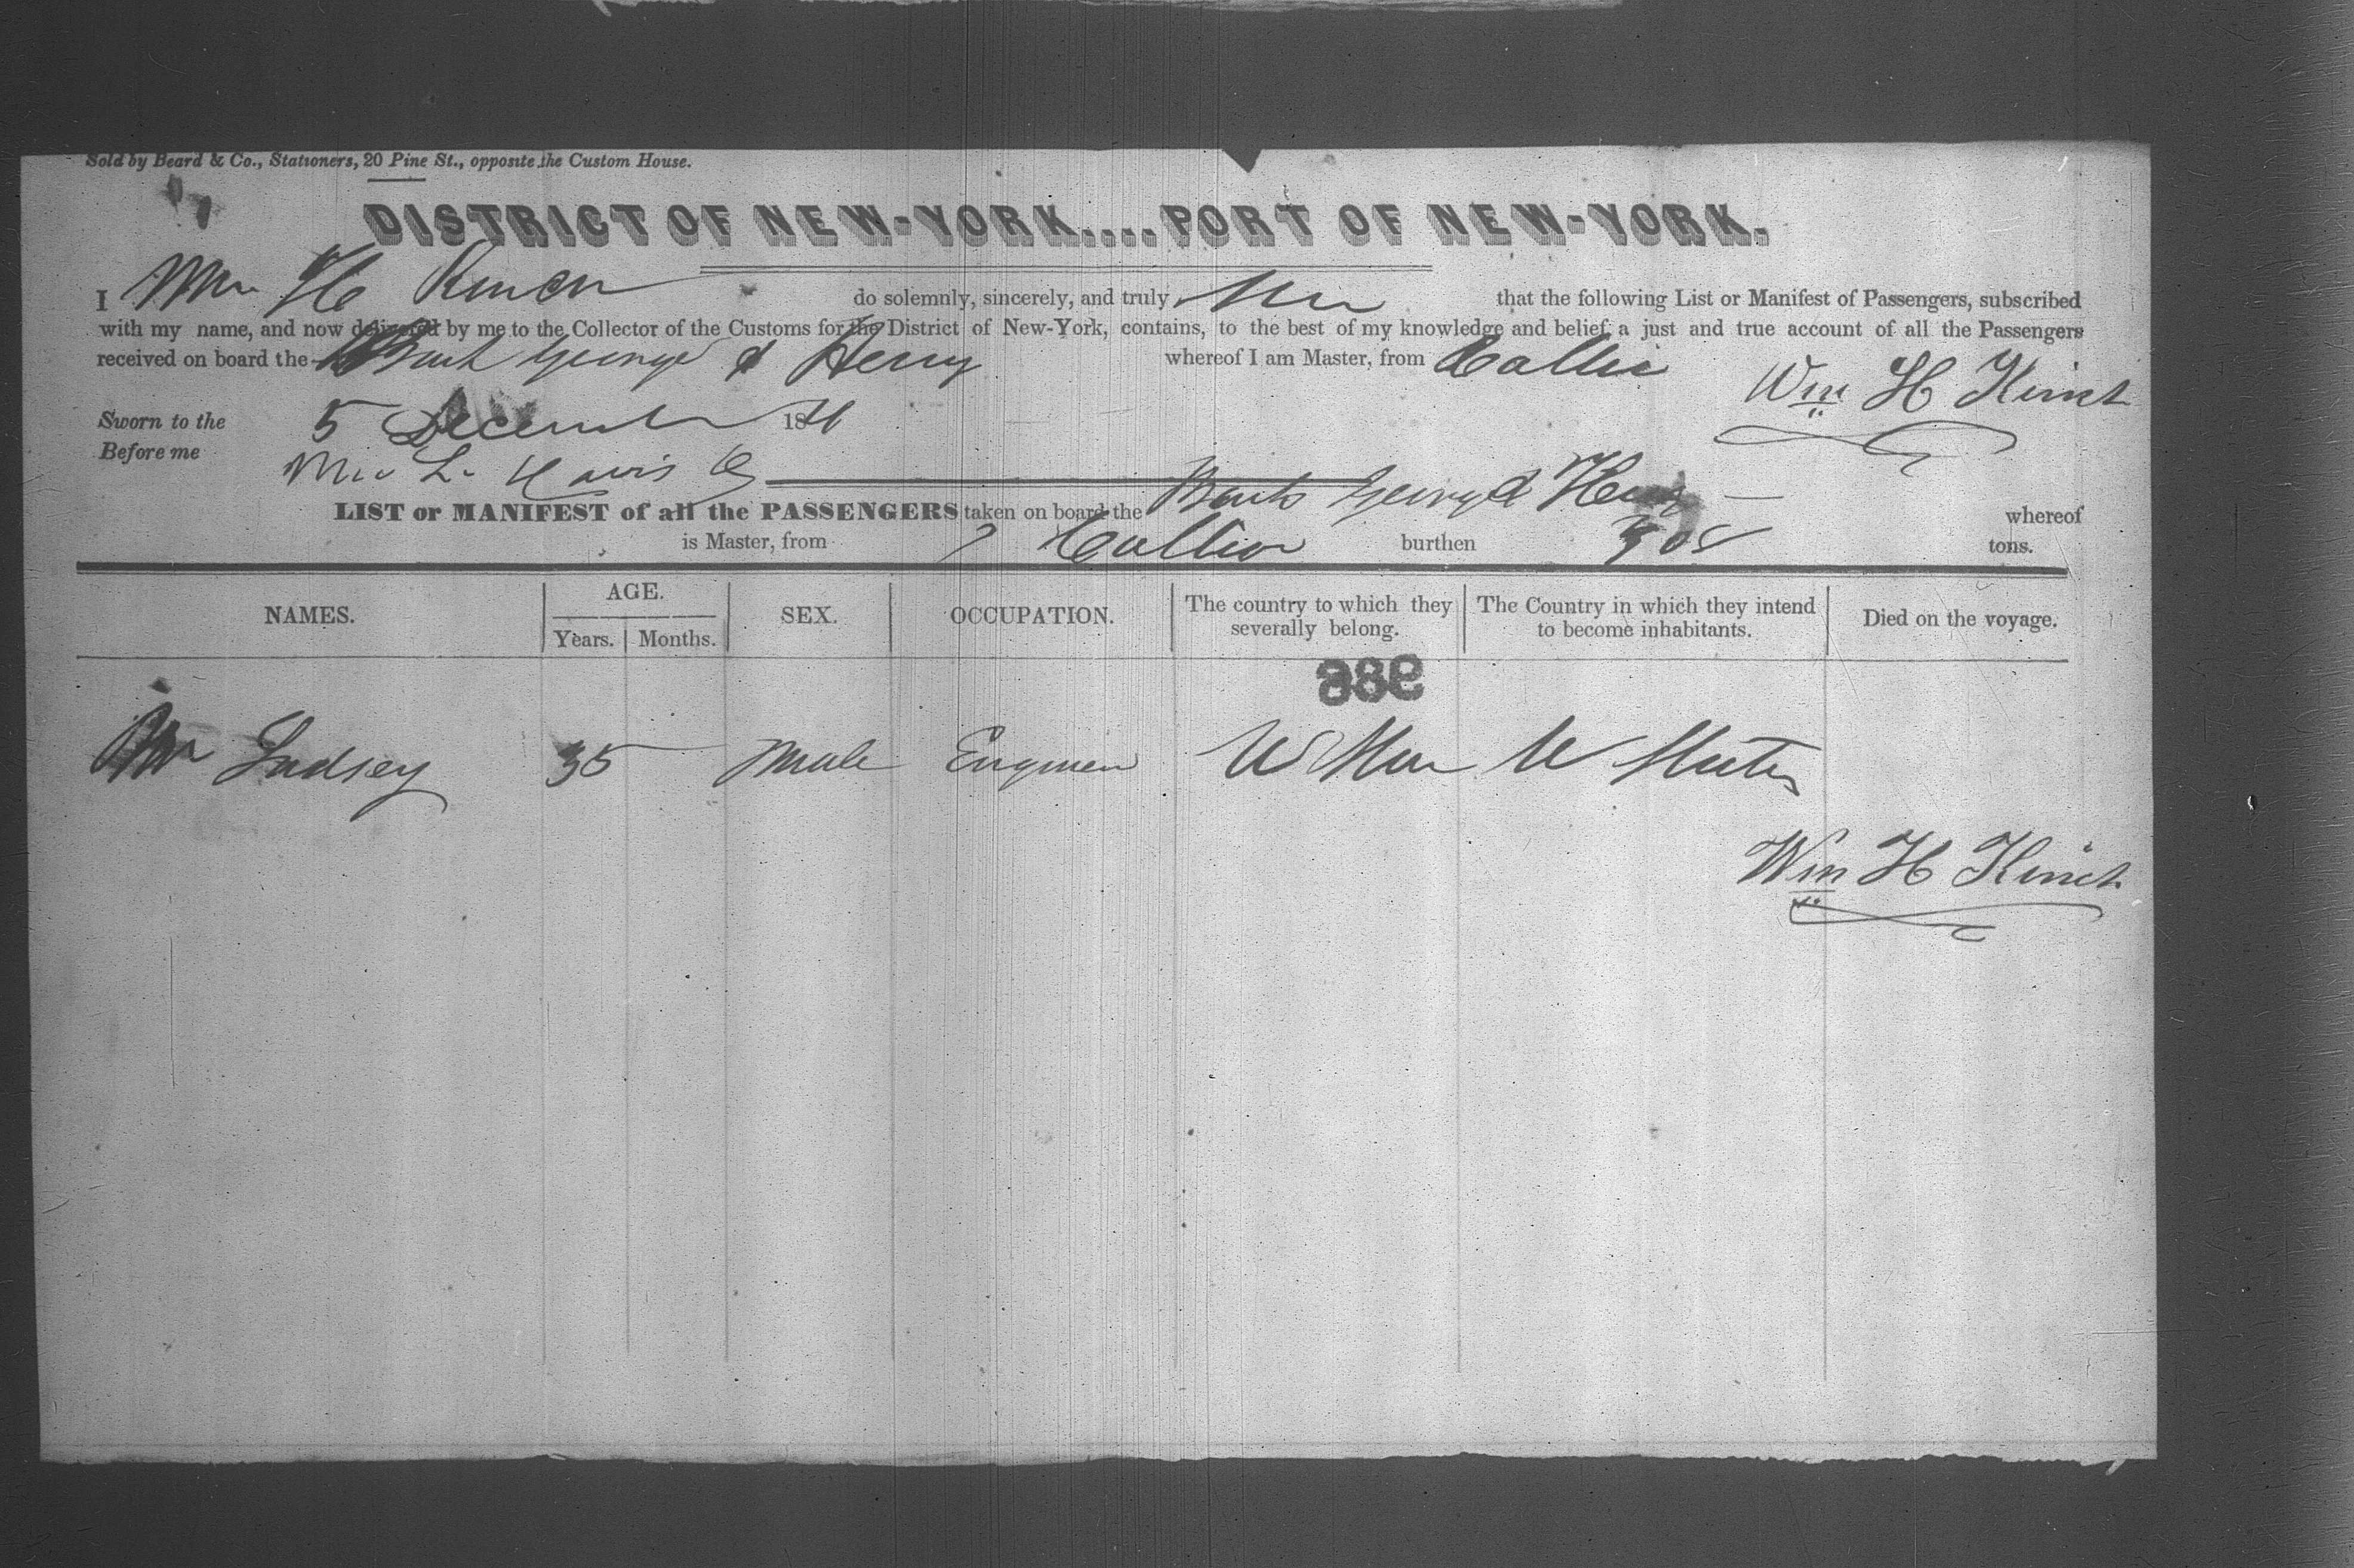 Sold by Beard & Co., Stationers, 20 Pine St., opposite the Custom House.
DISTRICT OF NEW-YORK....PORT OF NEW-YORK.
I Wm H do solemnly, sincerely, and truly that the following List or Manifest of Passengers, subscribed
with my name, and now delivered by me to the Collector of the Customs for the District of New-York, contains, to the best of my knowledge and belief a just and true account of all the Passengers
received on board the Bark George & Henry whereof I am Master, from Callao
Wm H Kinch
Sworn to the 5 December 18
Before me
LIST or MANIFEST of all the PASSENGERS taken on board the Bark George & Henry whereof
is Master, from Callao burthen tons.
NAMES. AGE. Years. Months. SEX. OCCUPATION. The country to which they severally belong. The Country in which they intend to become inhabitants. Died on the voyage.
986
Mr Ludsey 35 Male U States
Wm H Kinch